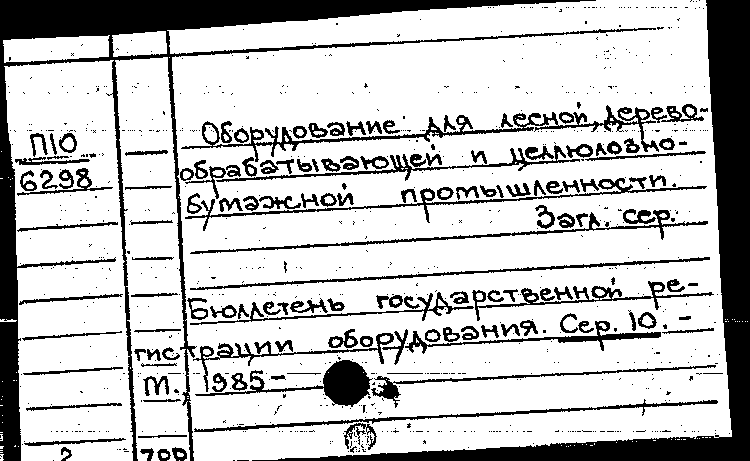 П10
6298
Оборудование для лесной, дерево-
обрабатывающей и целлюлозно-
бумажной промышленности.
Загл. сер.
Бюллетень государственной ре-
гистрации оборудования. Сер. 10. -
М., 1985-